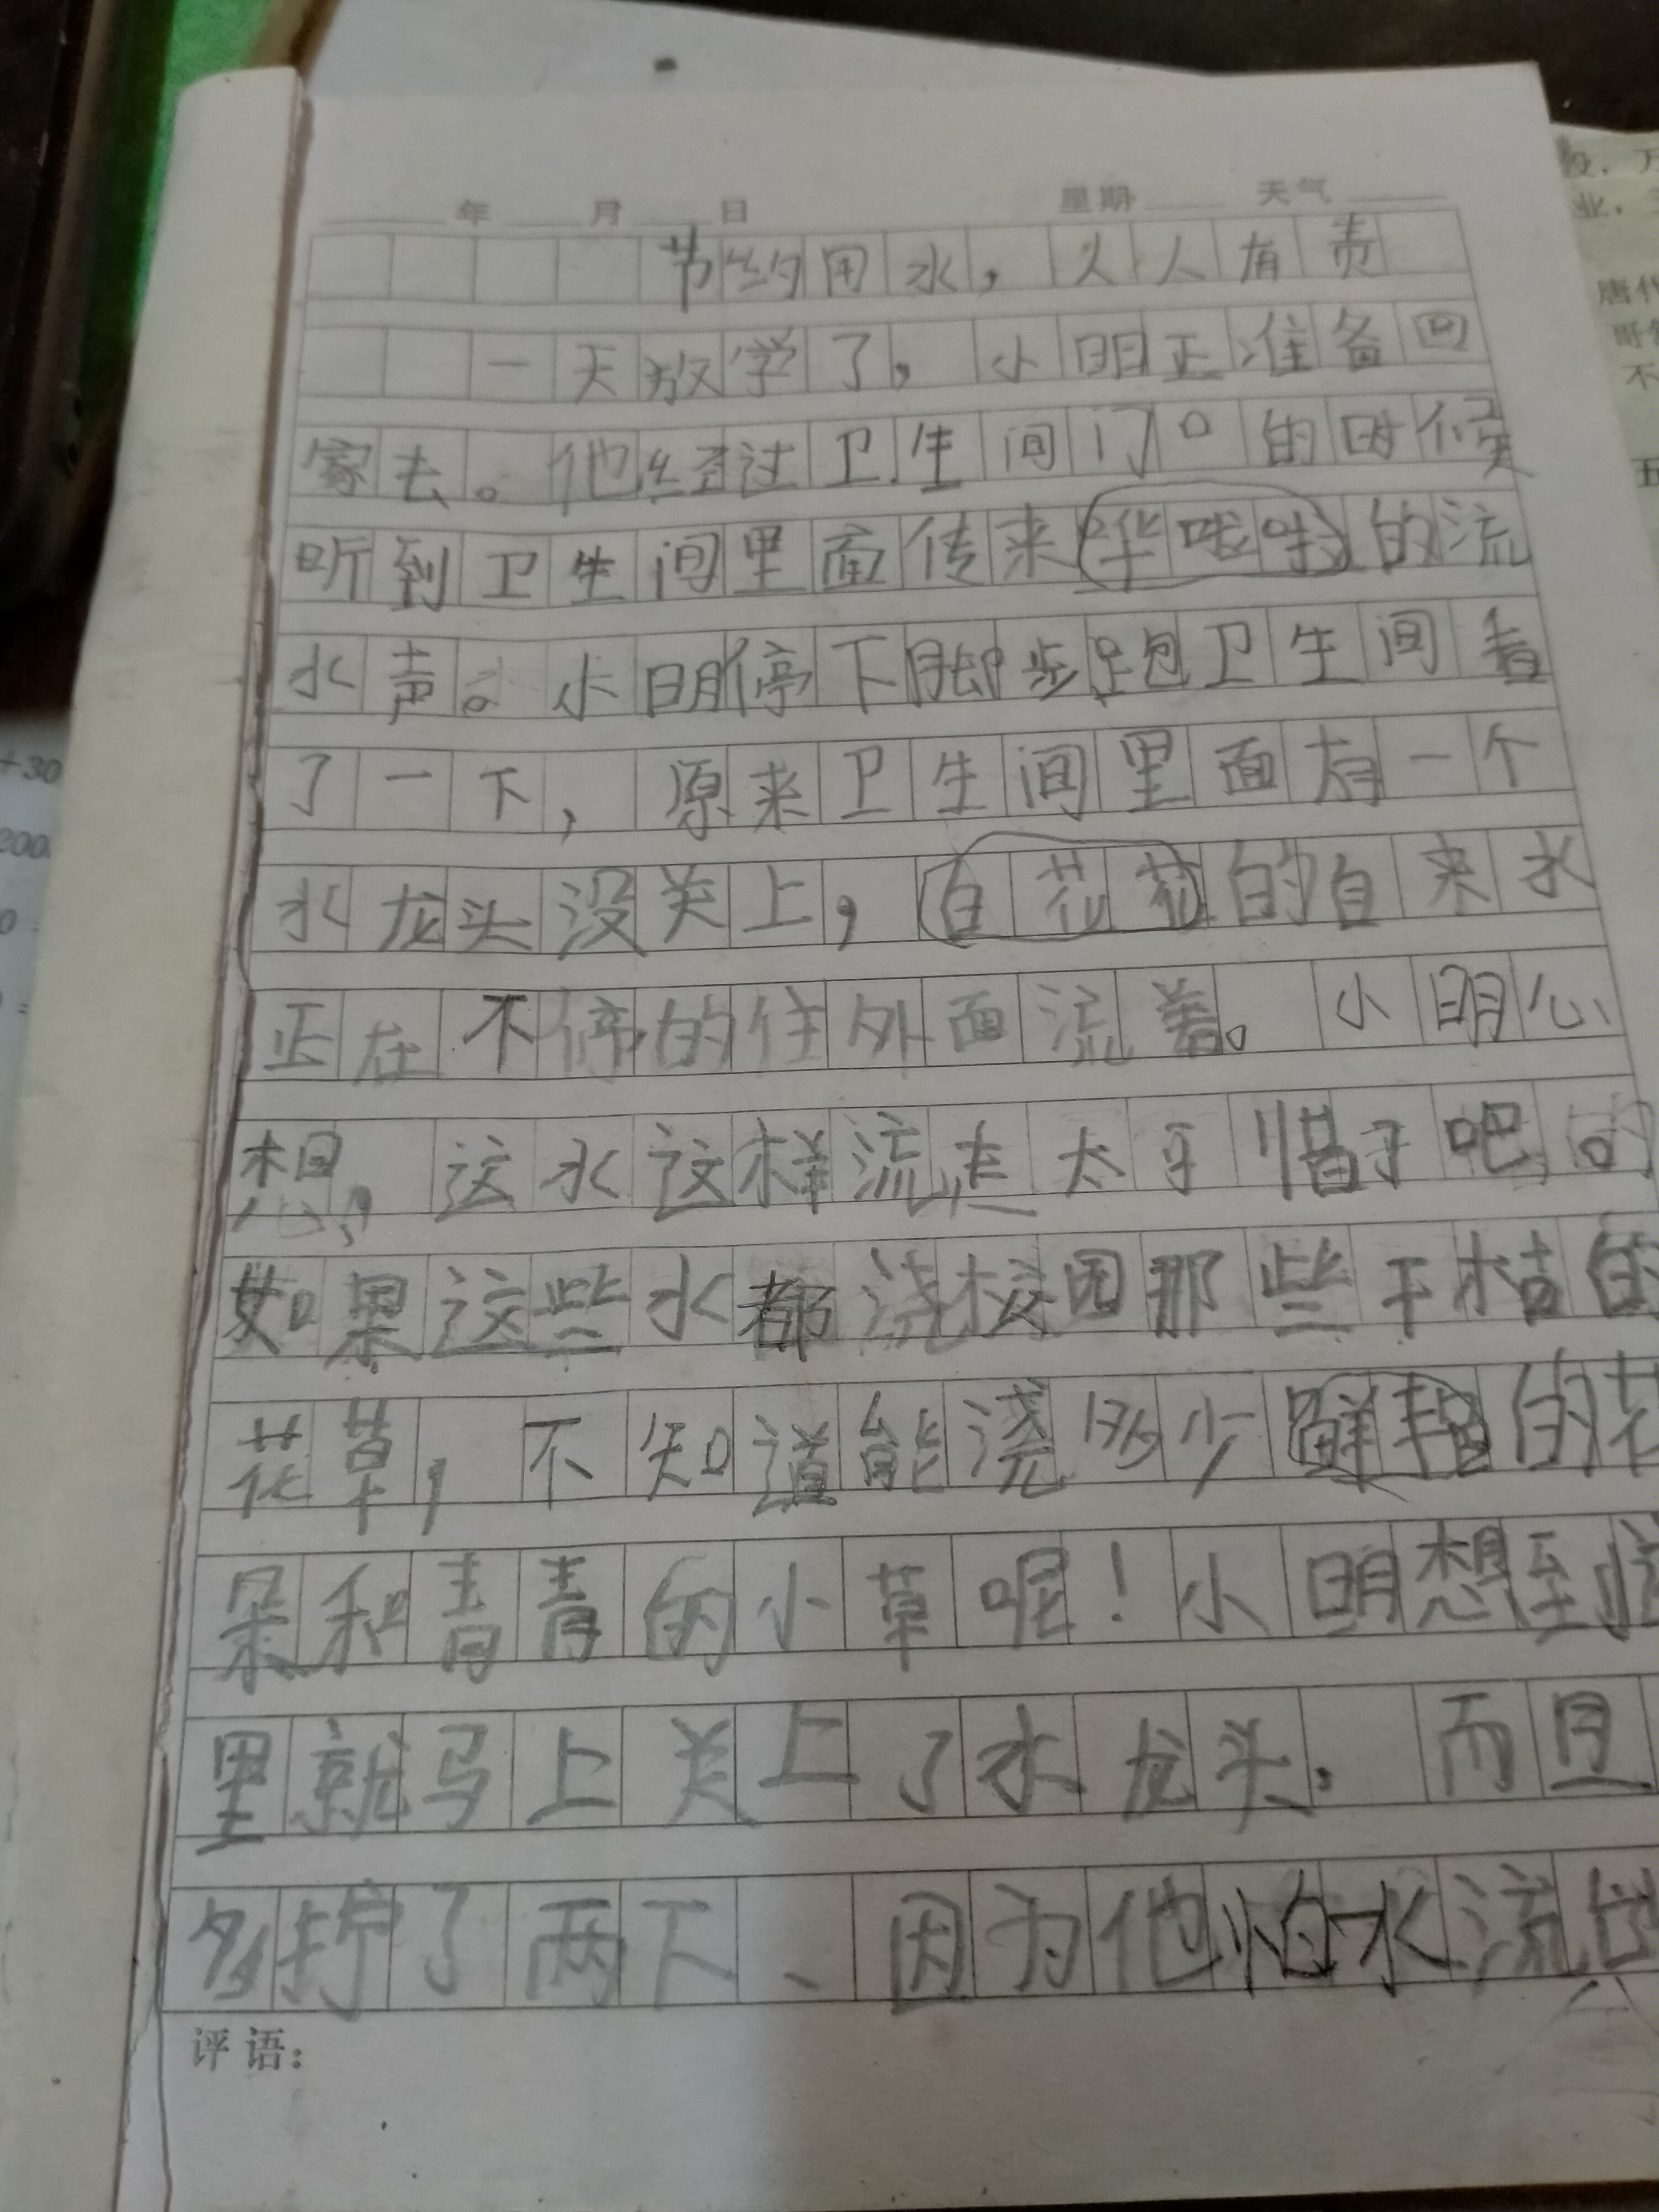 年 月 日 星期 天气
节约用水，人人有责
一天放学了，小明正准备回
家去。他经过卫生间门口的时候
听到卫生间里面传来哗啦啦的流
水声。小明停下脚步跑卫生间看
了一下，原来卫生间里面有一个
水龙头没关上，白花花的自来水
正在不停的往外面流着。小明心
想，这水这样流走太可惜了吧，
如果这些水都浇校园那些干枯的
花草，不知道能浇多少鲜艳的花
朵和青青的小草呢！小明想到这
里就马上关上了水龙头。而且
多拧了两下、因为他怕水流出
评语：
+30
200
唐代
不
五
业，